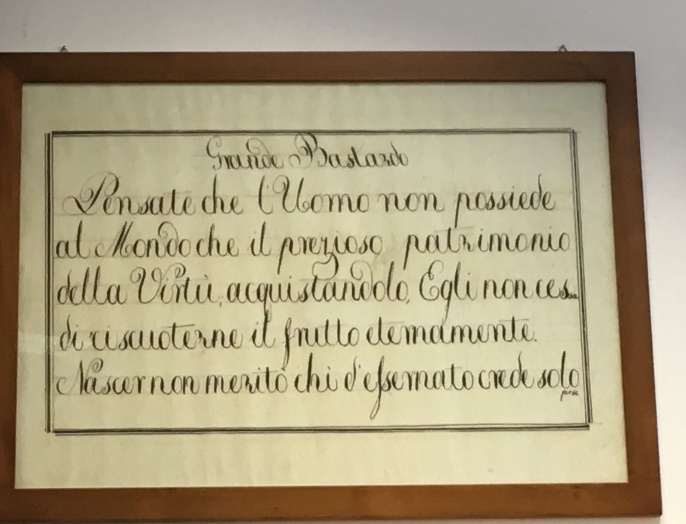 Grande Bastardo
Pensate che l'Uomo non possiede
al Mondo che il prezioso patrimonio
della Virtù, acquistandolo, Egli non ces
di riscuoterne il frutto eternamente.
Nascer non meritò chi d'esser nato crede solo
per se